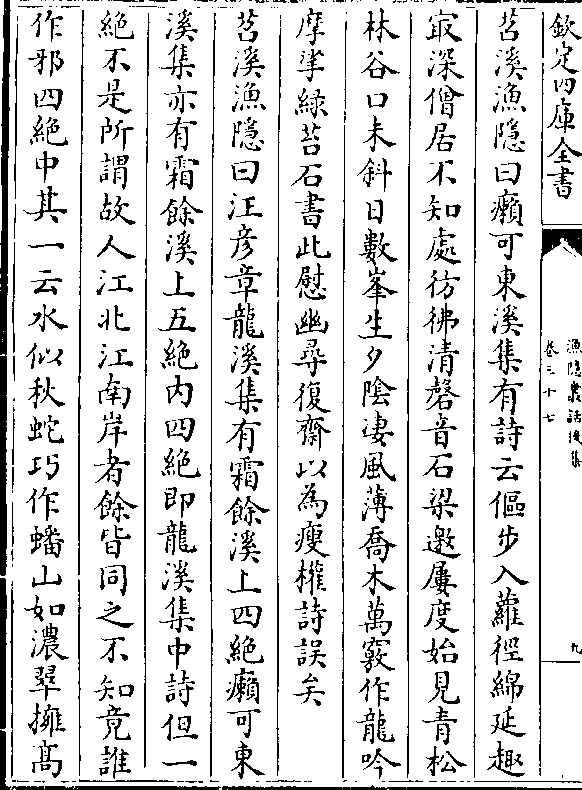 欽定四庫全書
漁隱叢話後集
卷三十七
九
苕溪漁隱曰癩可東溪集有詩云傴步入蘿徑綿延趣
㝡深僧居不知處彷彿清磬音石梁邀屢度始見青松
林谷口未斜日數峯生夕陰淒風薄喬木萬竅作龍吟
摩挲緑苔石書此慰幽尋復齋以為瘦權詩誤矣
苕溪漁隱曰江彦章龍溪集有霜餘溪上四絶癩可東
溪集亦有霜餘溪上五絶内四絶即龍溪集中詩但一
絶不是所謂故人江北江南岸者餘皆同之不知竟誰
作邪四絶中其一云水似秋蛇巧作蟠山如濃翠擁髙